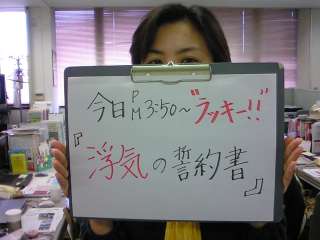 今日PM3:50～"ラッキー!!"
『浮気の誓約書』